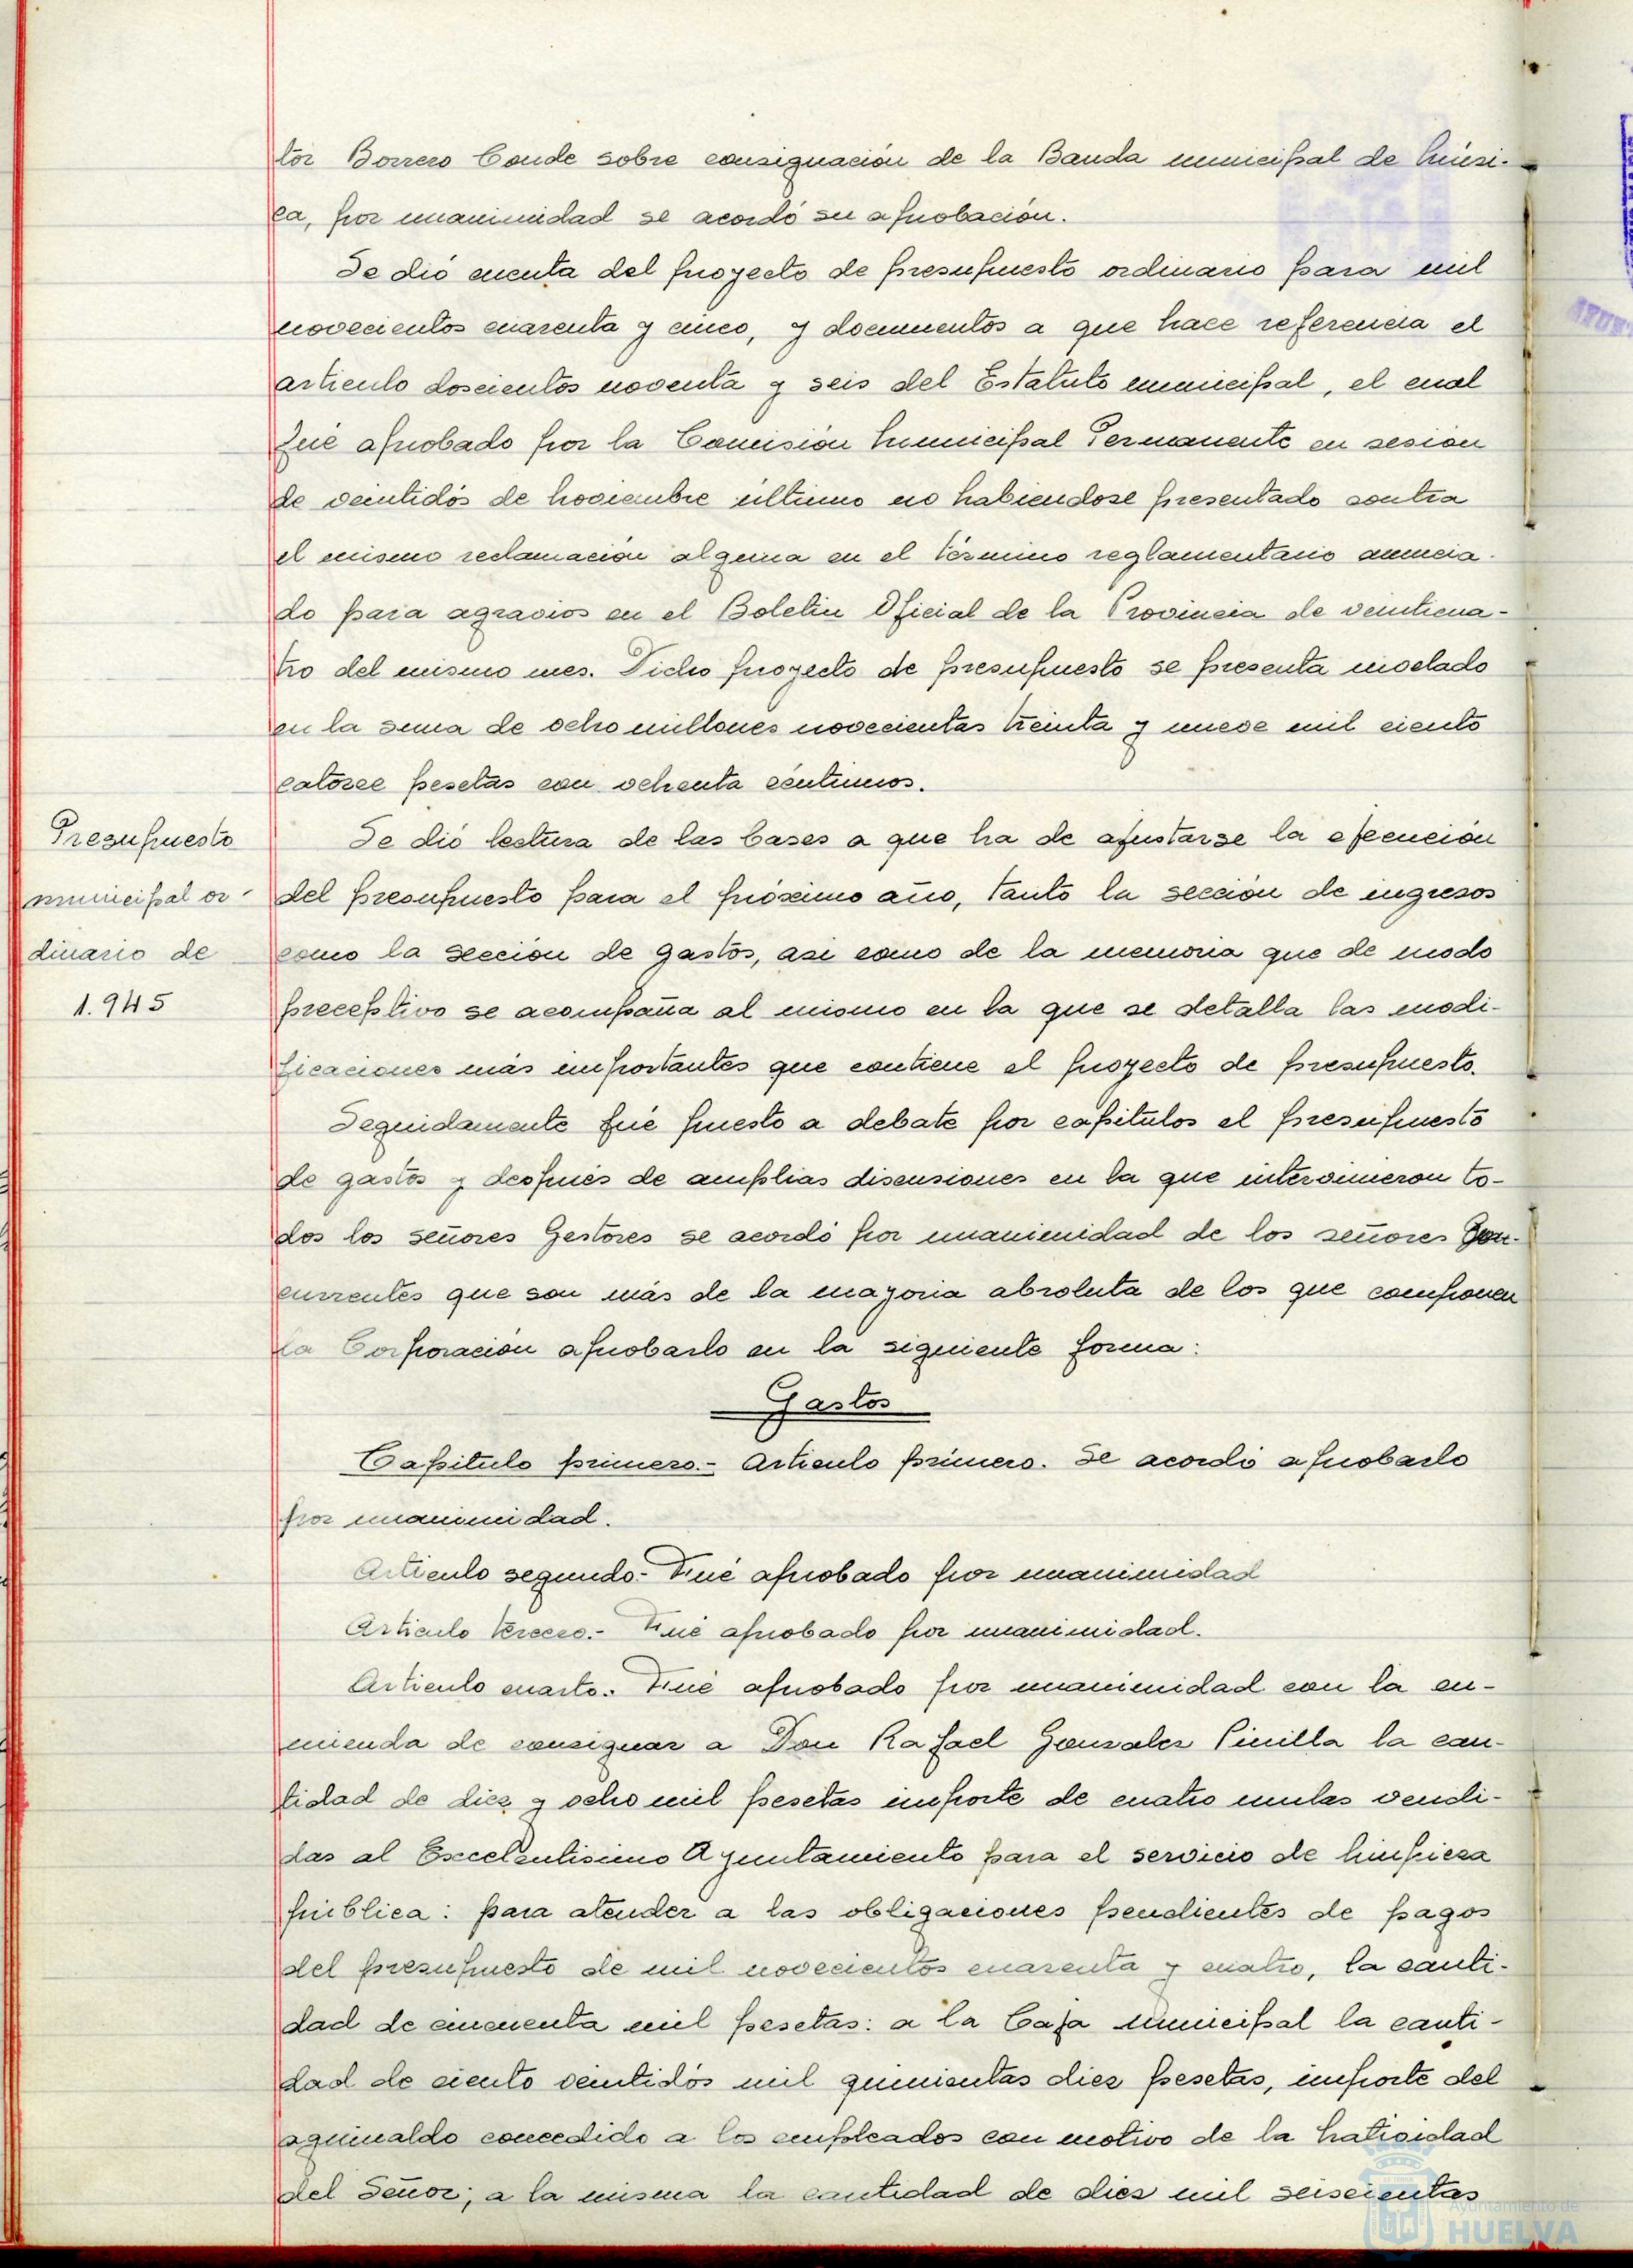 tor Borrero Conde sobre consignación de la Banda municipal de Músi-
ca, por unanimidad se acordó su aprobación.
Se dió cuenta del proyecto de presupuesto ordinario para mil
novecientos cuarenta y cinco, y documentos a que hace referencia el
articulo doscientos noventa y seis del Estatuto municipal, el cual
fué aprobado por la Comisión Municipal Permanente en sesión
de veintidós de Noviembre último no habiendose presentado contra
el mismo reclamación alguna en el término reglamentario anuncia-
do para agravios en el Boletin Oficial de la Provincia de veinticua-
tro del mismo mes. Dicho proyecto de presupuesto se presenta nivelado
en la suma de ocho millones novecientas treinta y nueve mil ciento
catorce pesetas con ochenta céntimos.
Presupuesto
municipal or-
dinario de
1.945
Se dió lectura de las bases a que ha de ajustarse la ejecución
del presupuesto para el próximo año, tanto la sección de ingresos
como la sección de gastos, asi como de la memoria que de modo
preceptivo se acompaña al mismo en la que se detalla las modi-
ficaciones más importantes que contiene el proyecto de presupuesto.
Seguidamente fué puesto a debate por capitulos el presupuesto
de gastos y después de amplias discusiones en la que intervinieron to-
dos los señores Gestores se acordó por unanimidad de los señores Con-
currentes que son más de la mayoria absoluta de los que componen
la Corporación aprobarlo en la siguiente forma:
Gastos
Capitulo primero.- Articulo primero. Se acordó aprobarlo
por unanimidad.
Articulo segundo.- Fué aprobado por unanimidad
Articulo tercero.- Fué aprobado por unanimidad.
Articulo cuarto.- Fué aprobado por unanimidad con la en-
mienda de consignar a Don Rafael Gonzalez Pinilla la can-
tidad de diez y ocho mil pesetas importe de cuatro mulas vendi-
das al Excelentisimo Ayuntamiento para el servicio de Limpieza
pública: para atender a las obligaciones pendientes de pagos
del presupuesto de mil novecientos cuarenta y cuatro, la canti-
dad de cincuenta mil pesetas: a la Caja municipal la canti-
dad de ciento veintidós mil quinientas diez pesetas, importe del
aguinaldo concedido a los empleados con motivo de la Natividad
del Señor; a la misma la cantidad de diez mil seiscientas
Ayuntamiento de
HUELVA